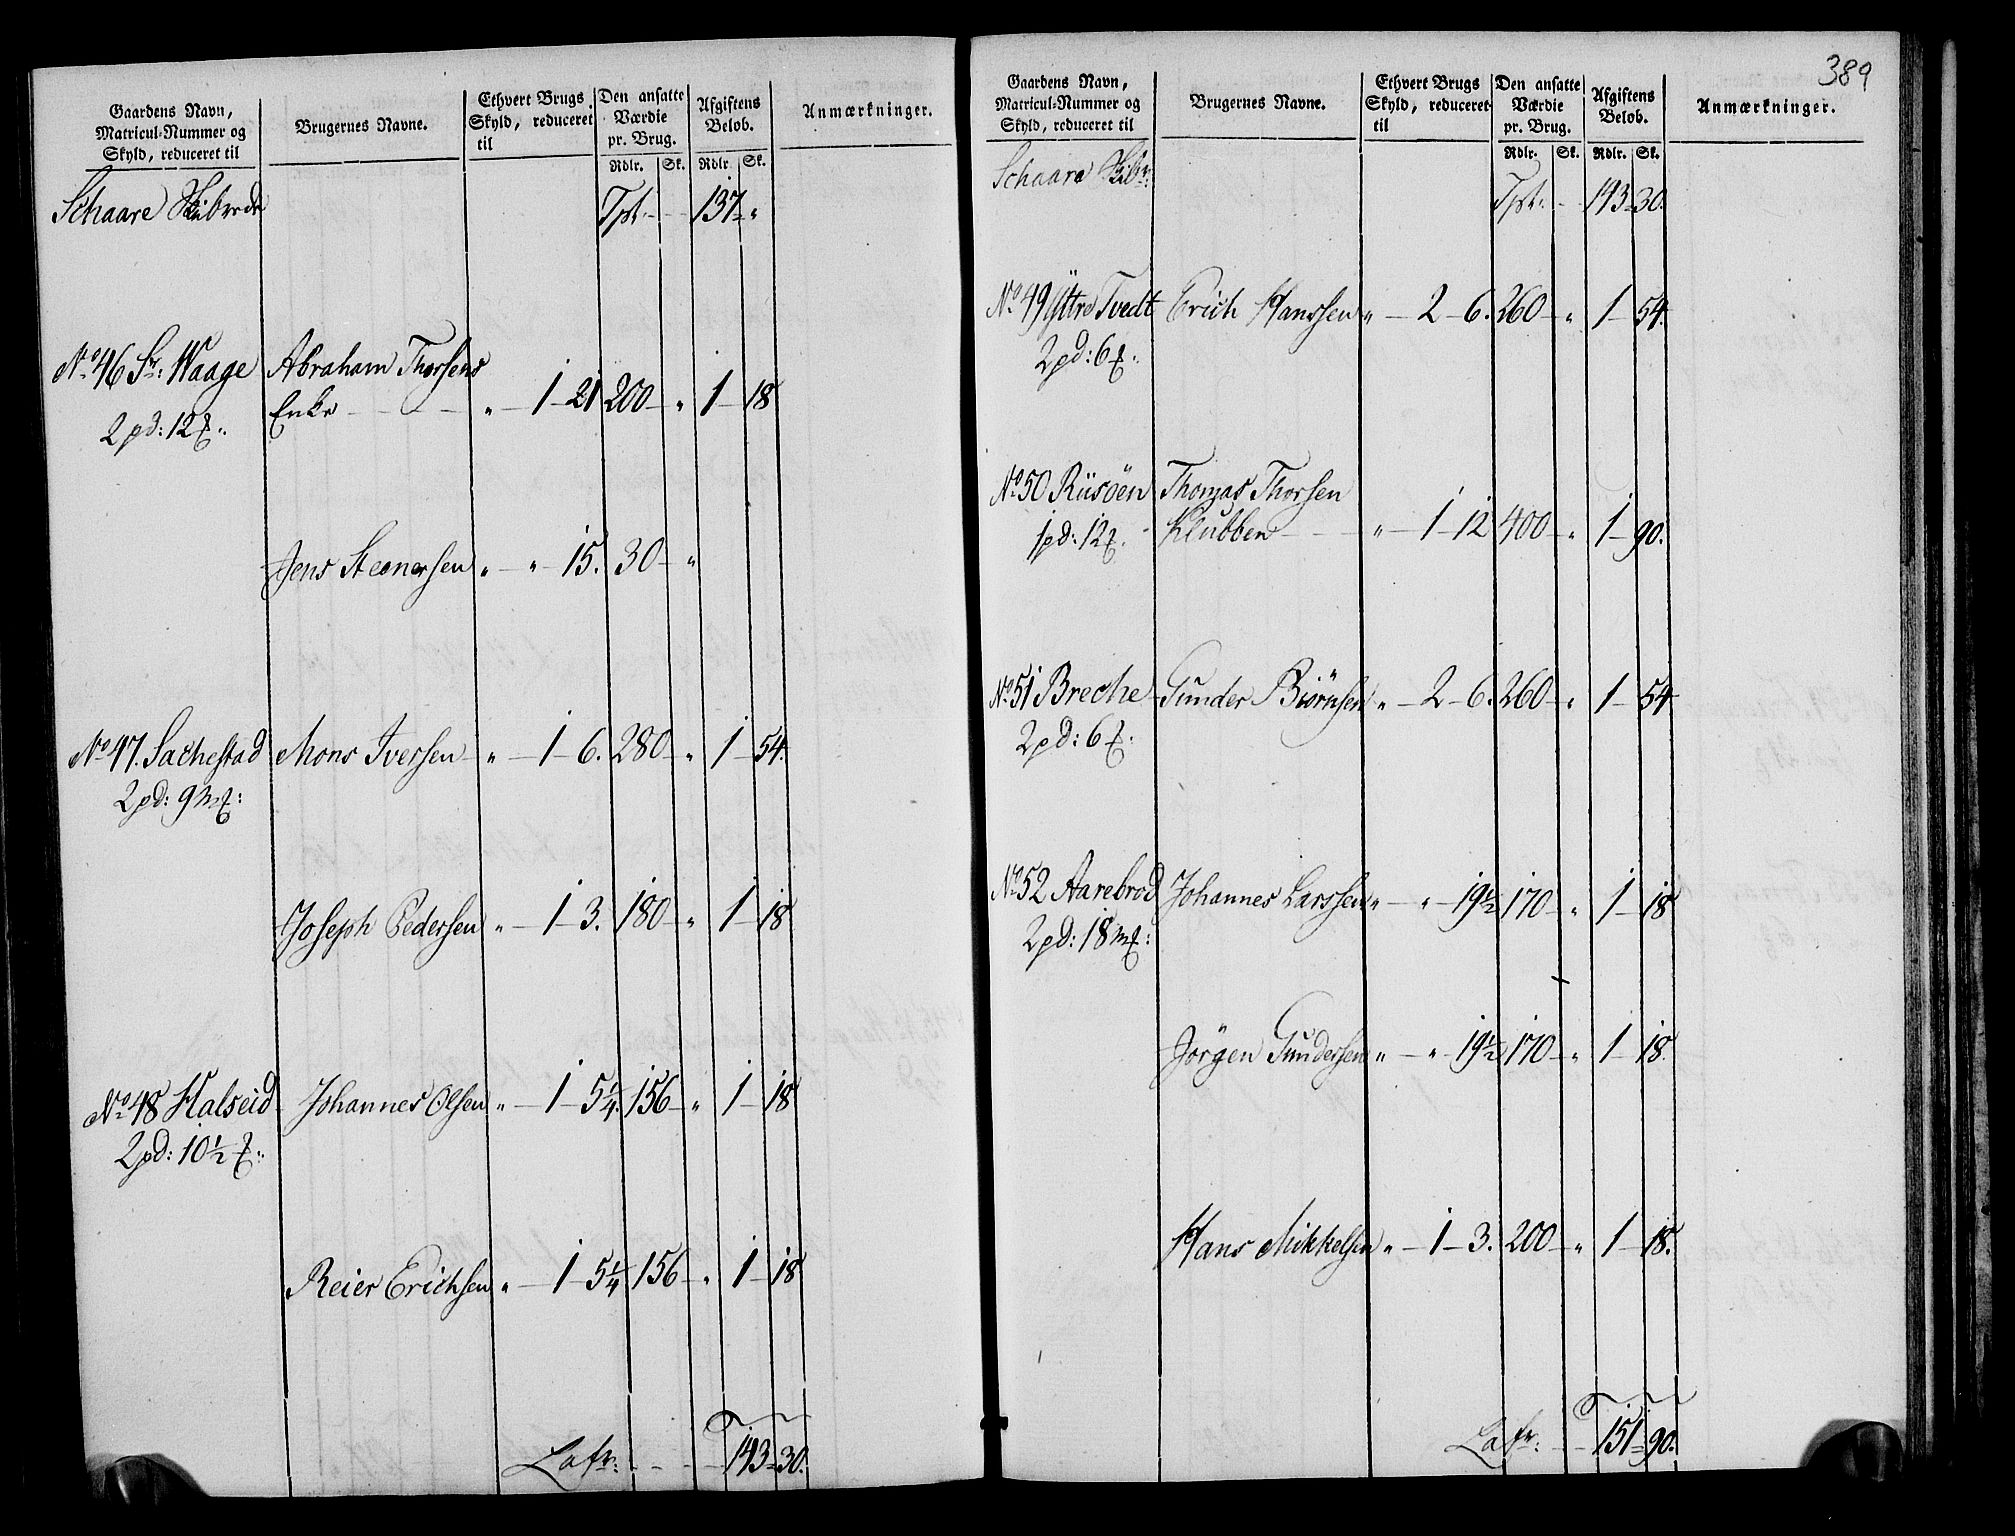 Gaardens Navn,
Matricul-Nummer og
Skyld, reduceret til
Brugernes Navne.
Ethvert Brugs
Skyld, reduceret
til
Den ansatte
Værdie
pr. Brug.
Rdlr. Sk.
Afgiftens
Beløb.
Rdlr. Sk.
Anmærkninger.
Schaare Skibrede
Tpt. - - 137 - "
No. 46 St: Waage Abraham Thorsens
2 pd: 12 ℔: Enke - - - " - 1 - 21 200 - " 1 - 18
Jens Steenersen " - " - 15. 30 - "
No. 47. Sachestad Mons Iversen - " - 1 - 6. 280 - " 1 - 54.
2 pd: 9 m℔:
Joseph Pedersen " - 1 - 3. 180 - " 1 - 18
No. 48 Halseid Johannes Olsen " - 1 - 5 1/4. 156 - " 1 - 18
2 pd: 10 1/2 ℔:
Reier Erichsen " - 1 - 5 1/4 156 - " 1 - 18
Lafr: - - - - 143 - 30.
389
Gaardens Navn,
Matricul-Nummer og
Skyld, reduceret til
Brugernes Navne.
Ethvert Brugs
Skyld, reduceret
til
Den ansatte
Værdie
pr. Brug.
Rdlr. Sk.
Afgiftens
Beløb.
Rdlr. Sk.
Anmærkninger.
Schaare Skibr:
Tpt. - - 143 - 30.
No. 49 Yttre Tvedt Erich Hanssen " - 2 - 6. 260 - " 1 - 54.
2 pd: 6 ℔:
No. 50 Riisöen Thomas Thorsen
1 pd: 12 ℔. Klubben - - - " - 1 - 12 400 - " 1 - 90.
No. 51 Breche Gunder Biörnsen " - 2 - 6. 260 - " 1 - 54
2 pd: 6 ℔:
No. 52 Aarebrod Johannes Larssen " - " - 19 1/2 170 - " 1 - 18
2 pd: 18 m℔:
Jörgen Gundersen " - " - 19 1/2 170 - " 1 - 18.
Hans Mikkelsen " - 1 - 3. 200 - " 1 - 18.
Lafr: - - 151 - 90.